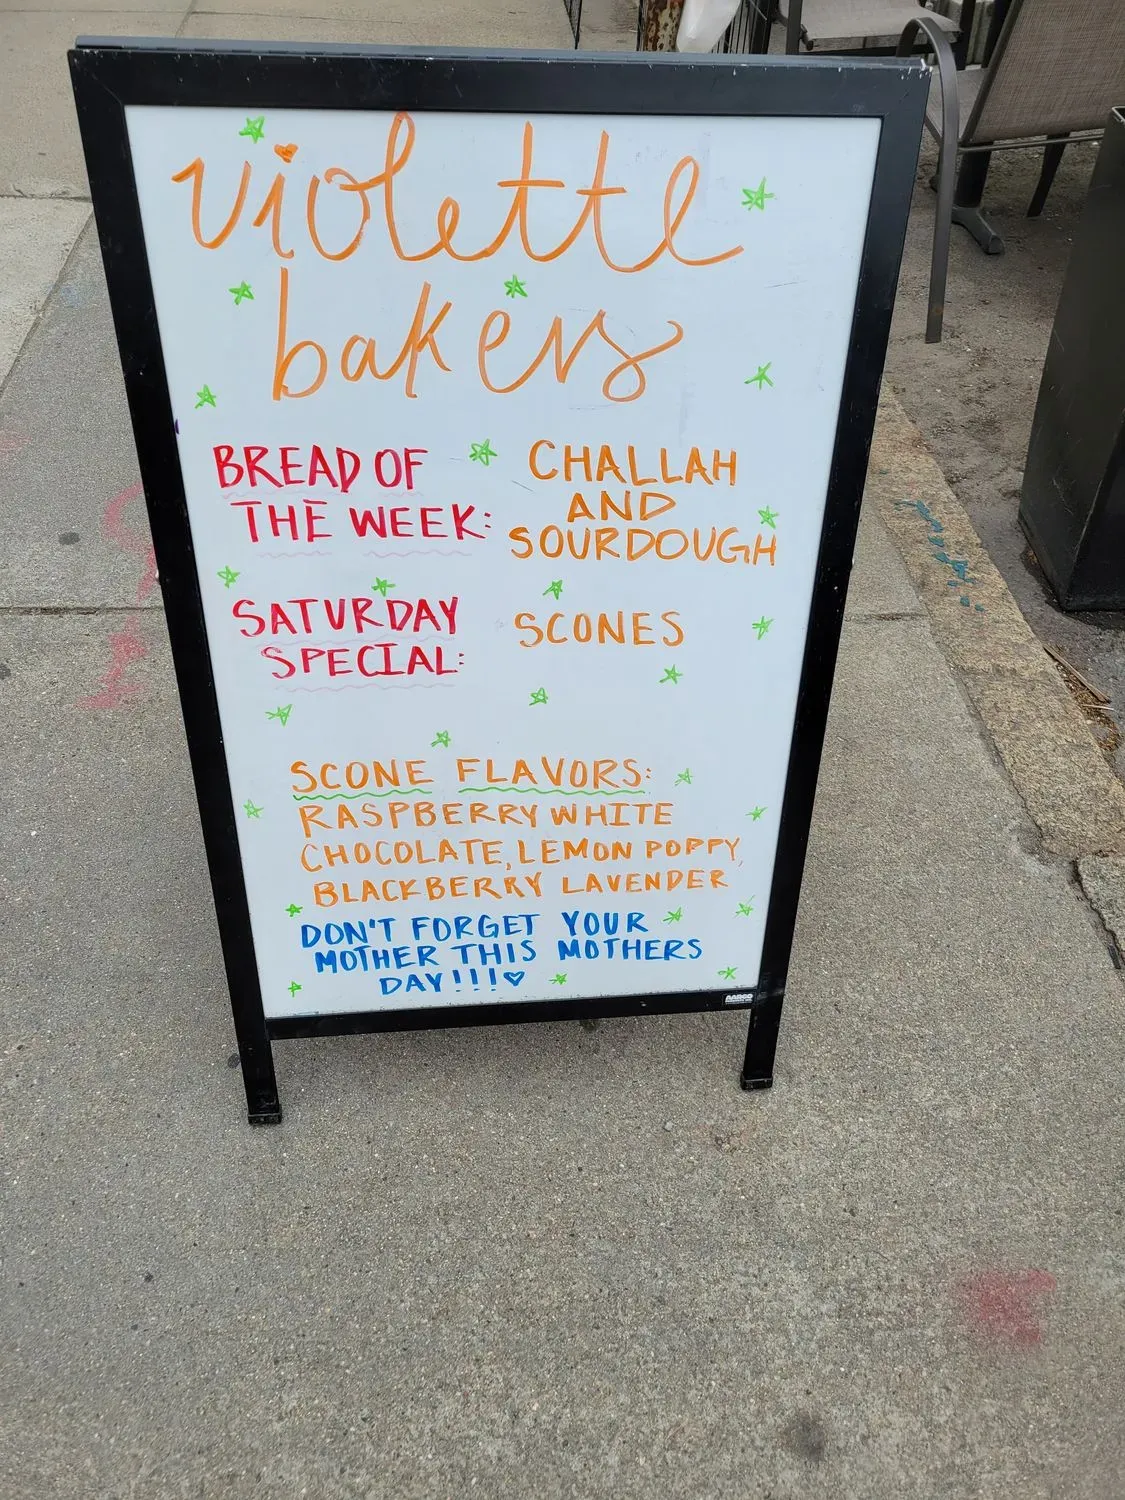 violette
bakers
BREAD OF
THE WEEK:
CHALLAH
AND
SOURDOUGH
SATURDAY
SPECIAL:
SCONES
SCONE FLAVORS:
RASPBERRY WHITE
CHOCOLATE, LEMON POPPY,
BLACKBERRY LAVENDER
DON'T FORGET YOUR
MOTHER THIS MOTHERS
DAY!!!♡
AARCO